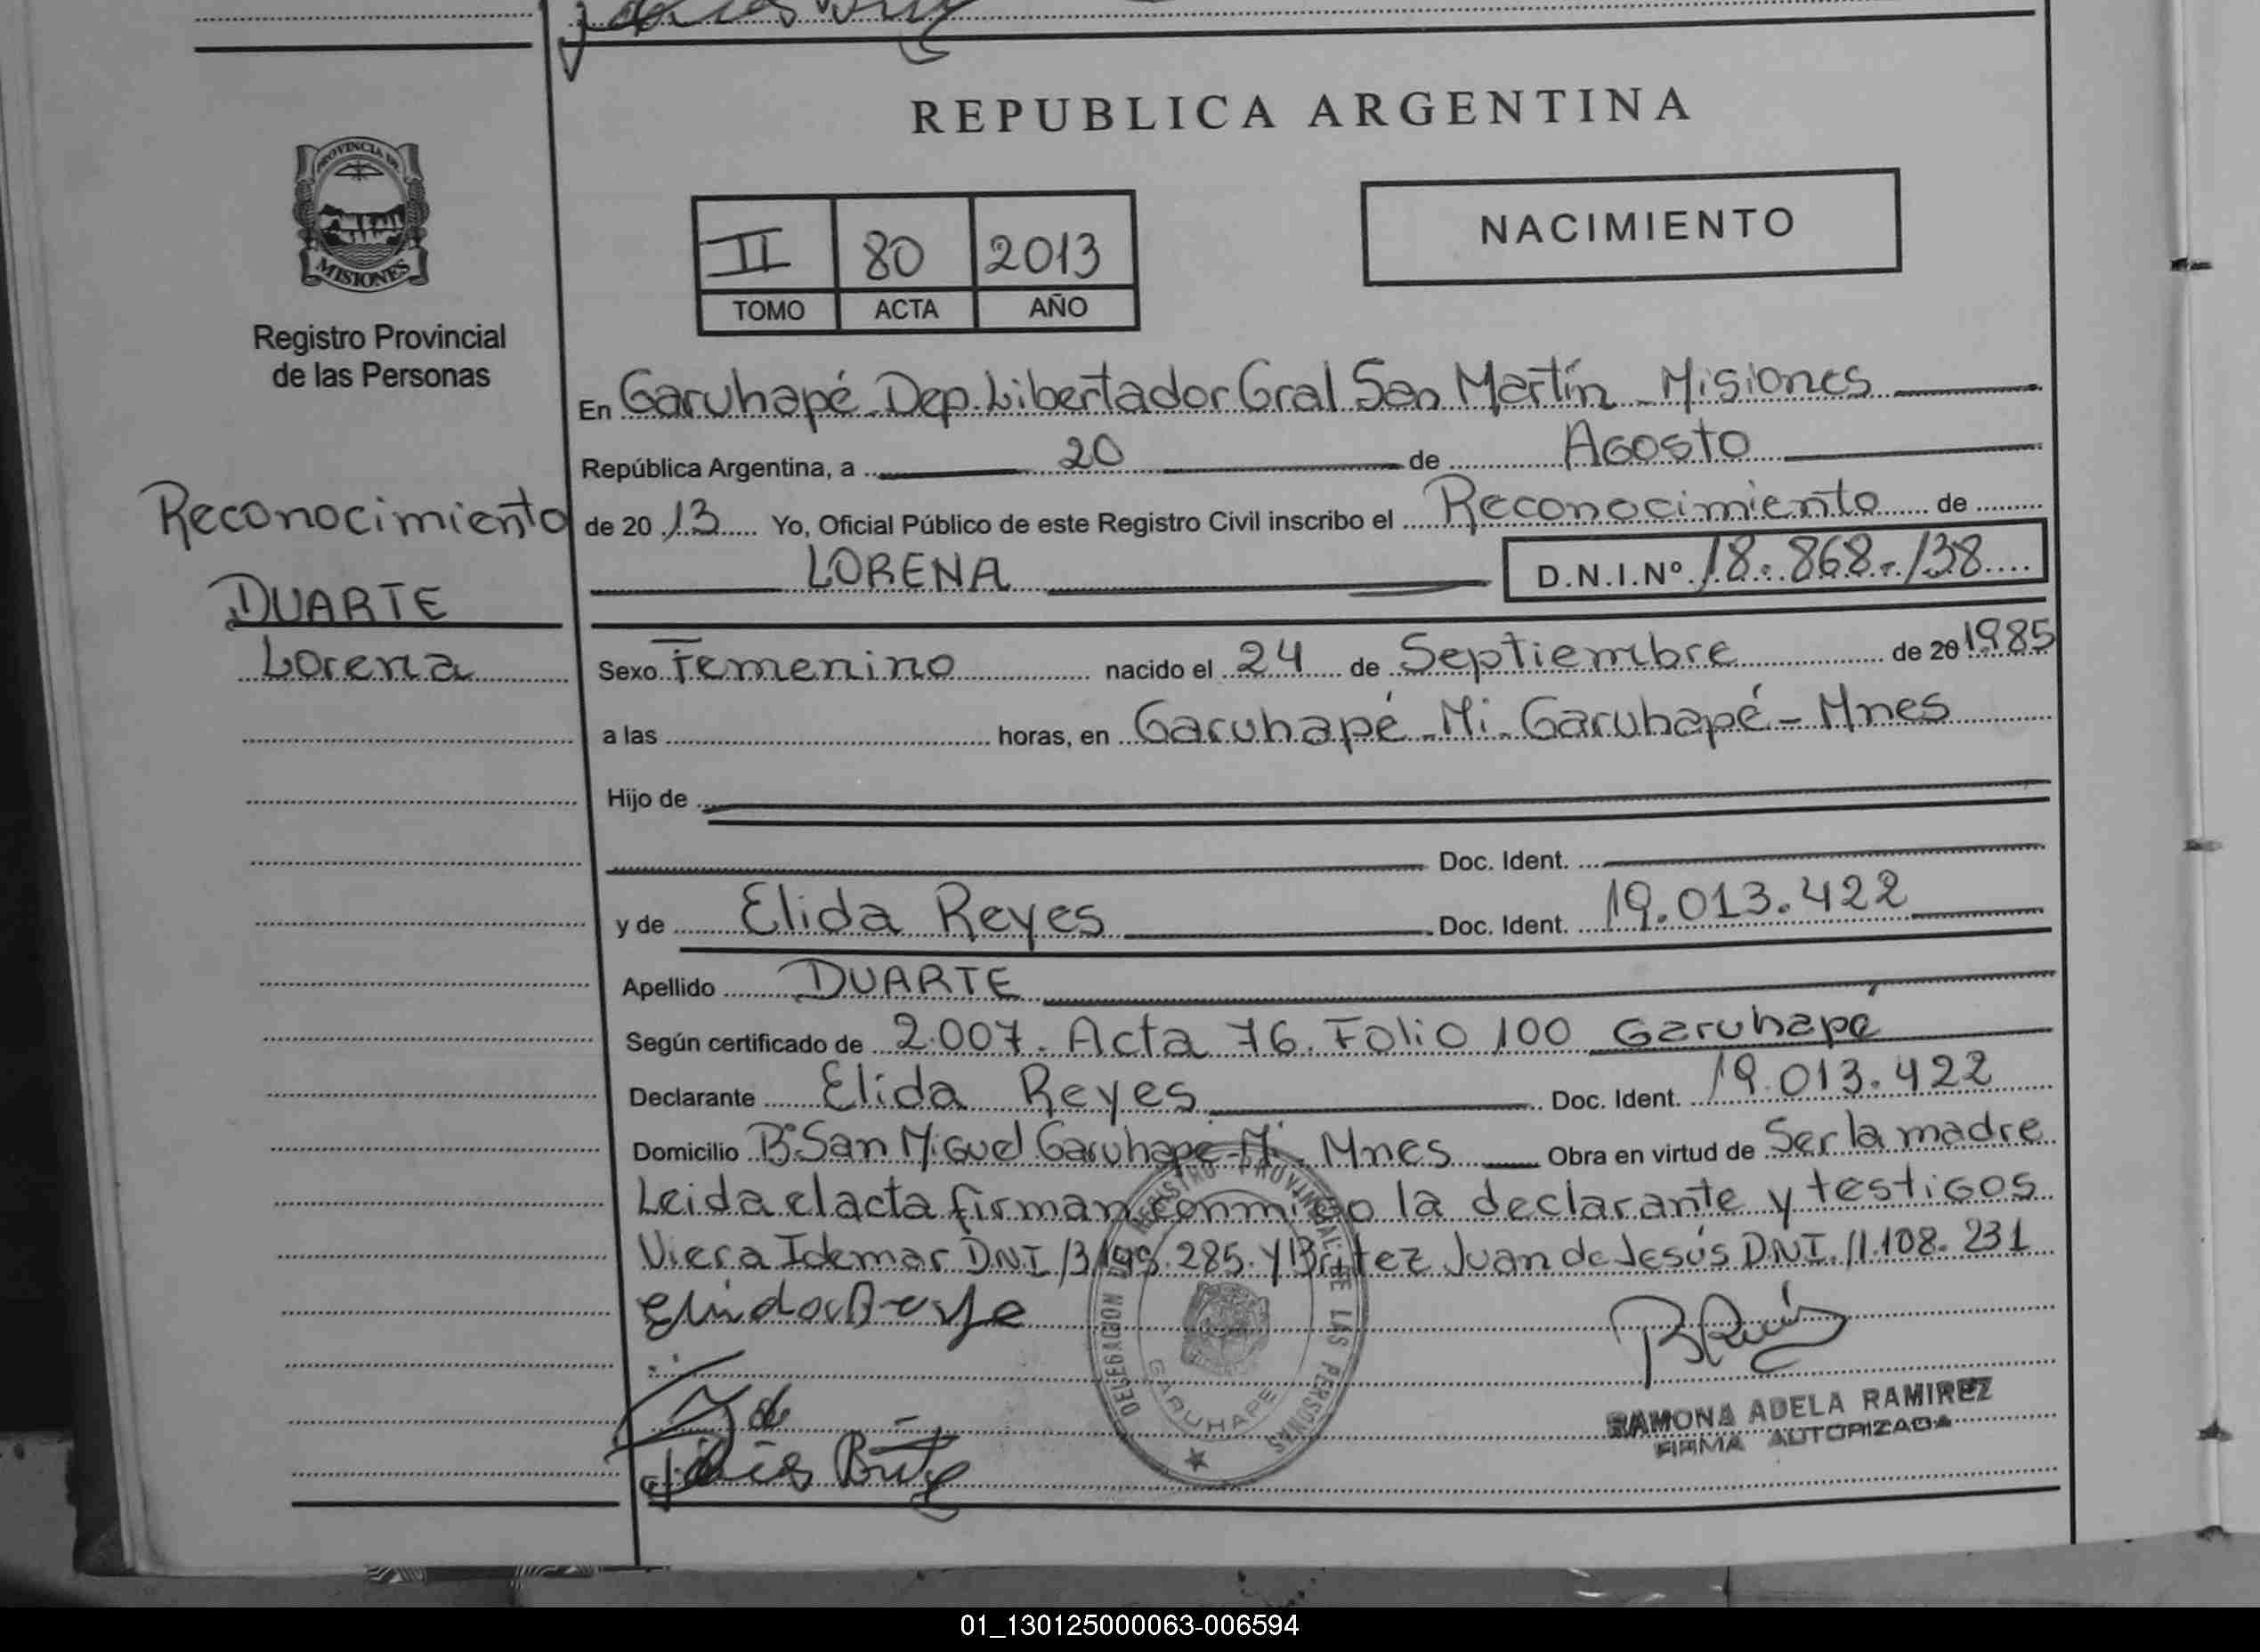 REPUBLICA ARGENTINA
PROVINCIA DE
MISIONES
Registro Provincial
de las Personas
Reconocimiento
DUARTE
Lorena
II 80 2013
TOMO ACTA AÑO
NACIMIENTO
En Garuhapé Dep. Libertador Gral San Martín - Misiones
República Argentina, a 20 de Agosto
de 2013 Yo, Oficial Público de este Registro Civil inscribo el Reconocimiento de
LORENA D.N.I.Nº 18.868.138
Sexo Femenino nacido el 24 de Septiembre de 20 1985
a las horas, en Garuhapé - Mi. Garuhapé - Mnes
Hijo de
Doc. Ident.
y de Elida Reyes Doc. Ident. 19.013.422
Apellido DUARTE
Según certificado de 2.007. Acta 76. Folio 100 Garuhapé
Declarante Elida Reyes Doc. Ident. 19.013.422
Domicilio Bº San Miguel Garuhape - Mi. Mnes Obra en virtud de Ser la madre
Leida el acta firman conmigo la declarante y testigos
Viera Idemar DNI 13.199.285. y Britez Juan de Jesús DNI. 11.108.231
DELEGACION REGISTRO PROVINCIAL DE LAS PERSONAS
GARUHAPE
RAMONA ADELA RAMIREZ
FIRMA AUTORIZADA
01_130125000063-006594